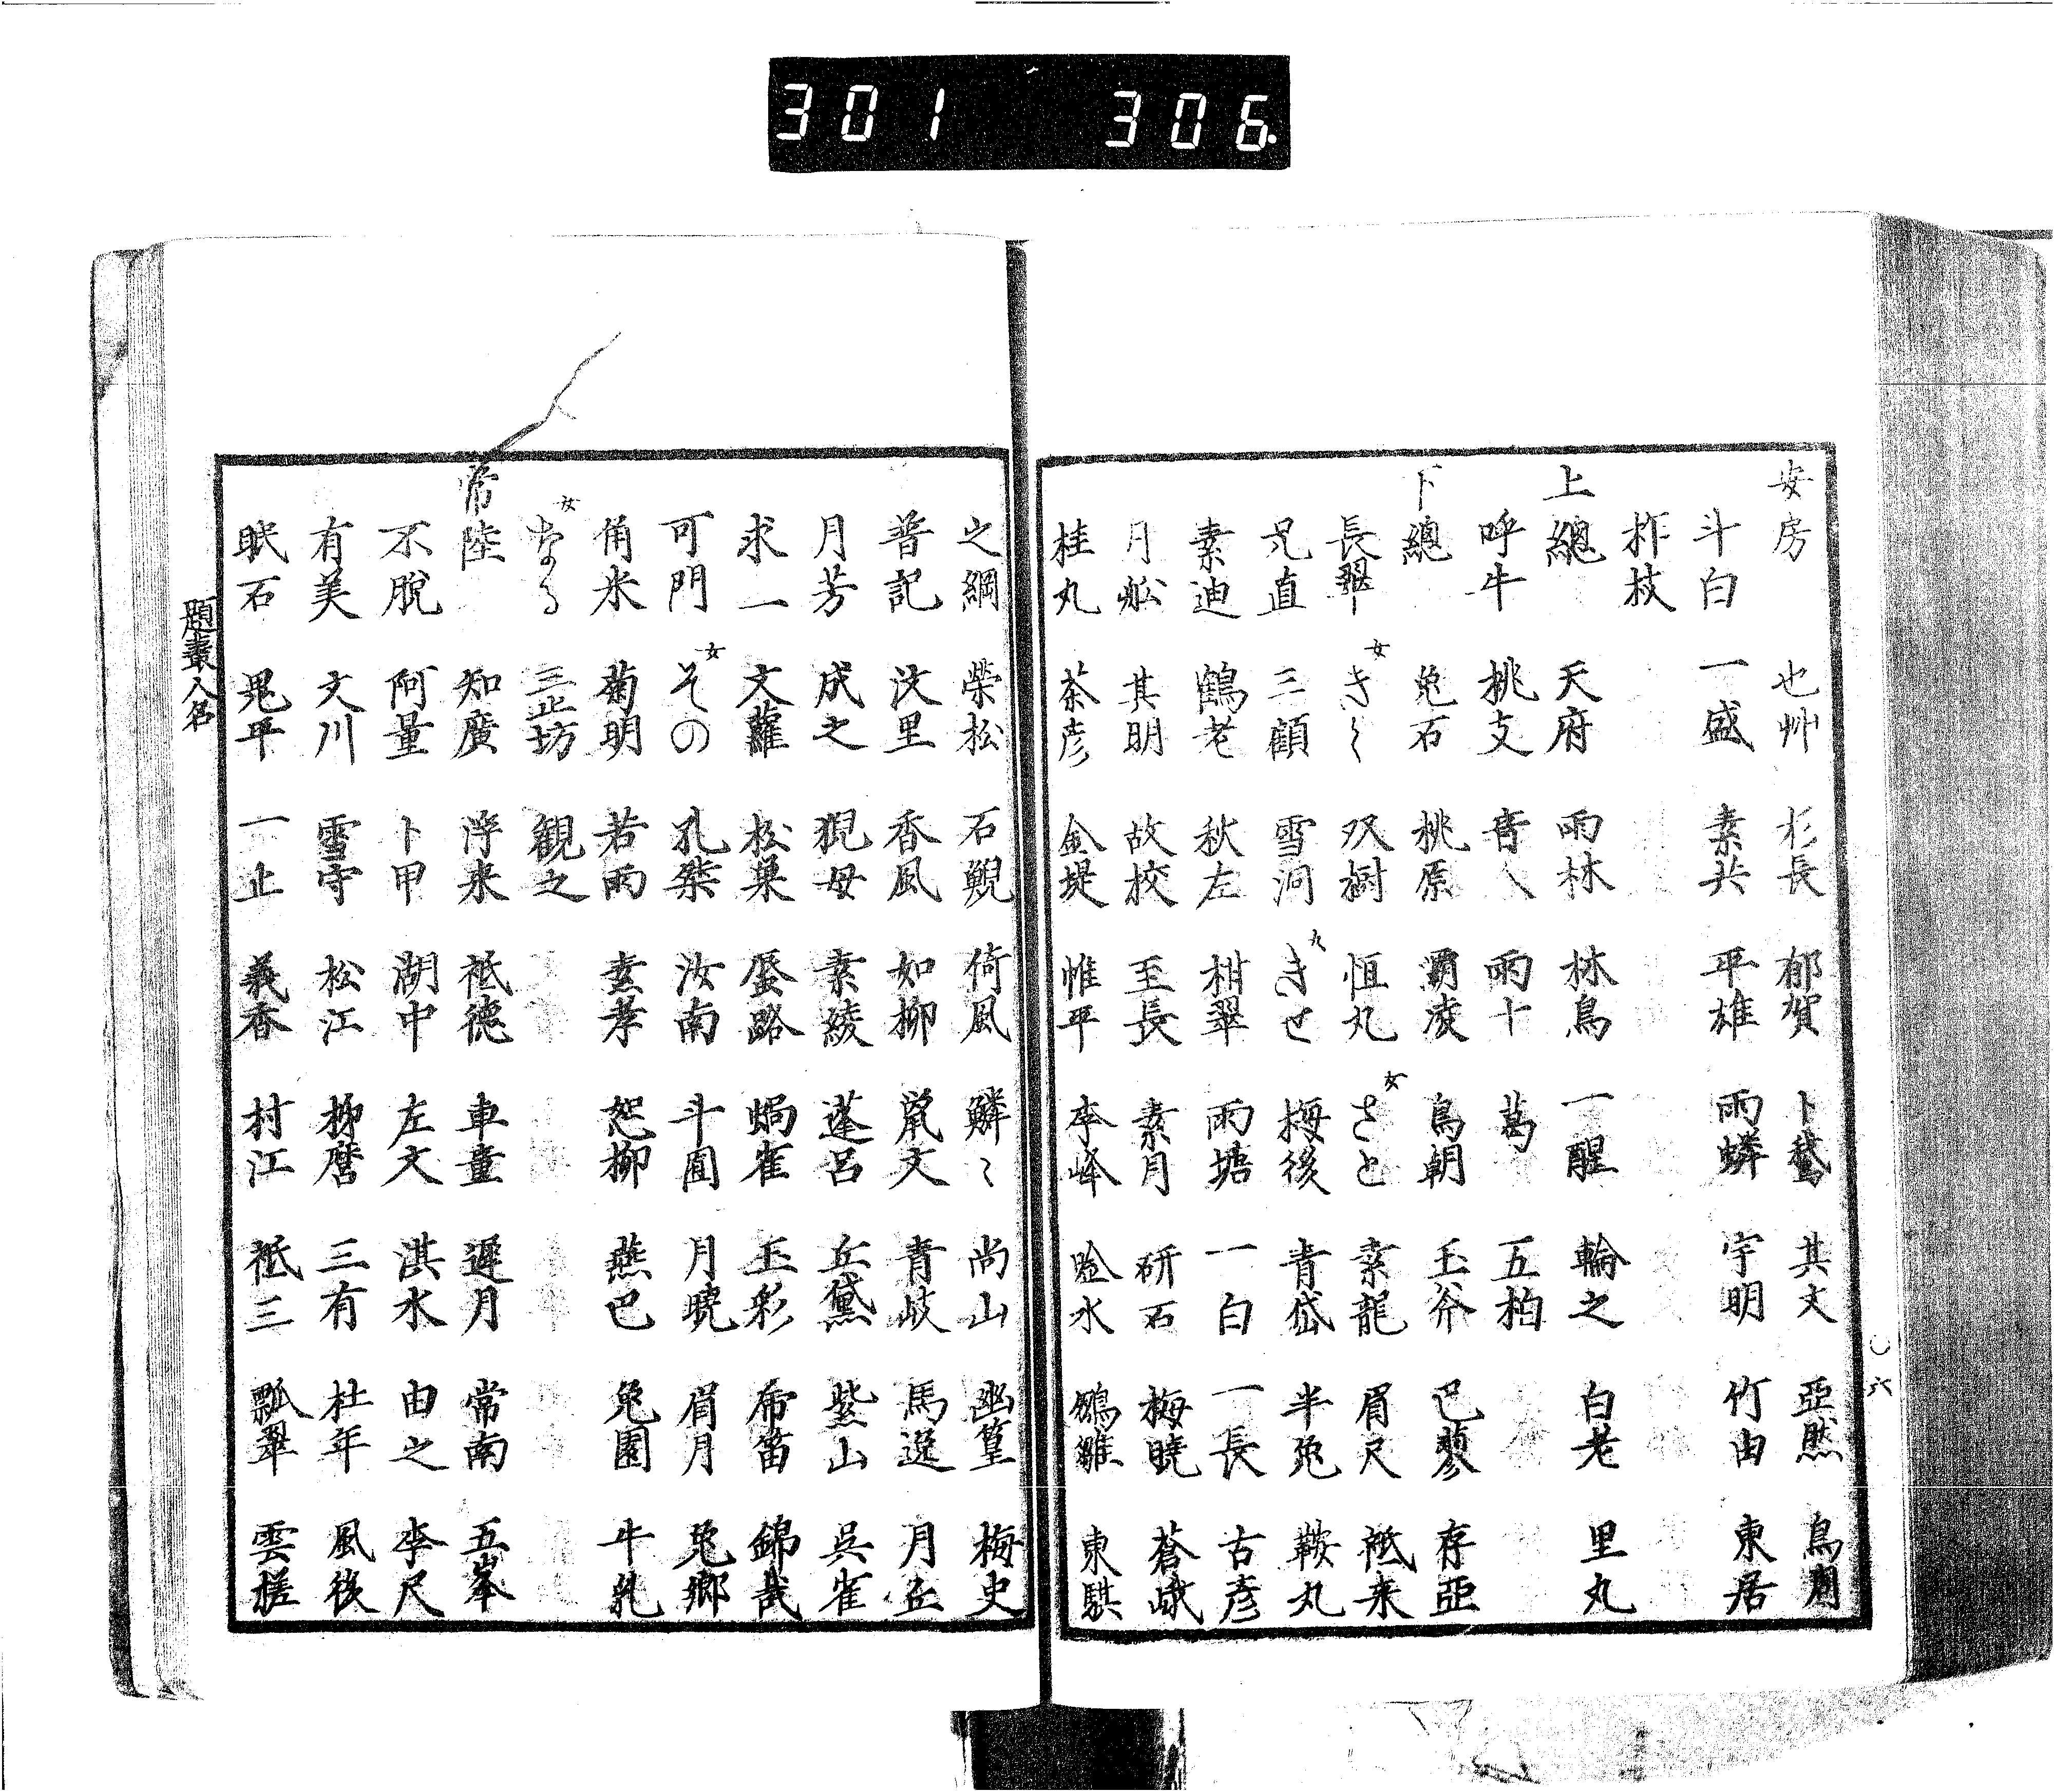 301 306
安房 也艸 杉長 郁賀 卜鵞 其文 亞然 鳥周
斗白 一盛 素共 平雄 雨蟒 宇明 竹由 東居
柞枝
上總 天府 雨林 林鳥 一醒 輪之 白老 里丸
呼牛 桃支 音人 雨十 葛 五柏
下總 兎石 桃原 霸凌 鳥朝 玉斧 巴蓼 存亞
長翠 女きく 双樹 恒丸 女さと 素龍 眉尺 祗来
兄直 三顧 雪洞 きせ 梅後 青岱 半兎 鞍丸
素迪 鶴老 秋左 柑翠 雨塘 一白 一長 古彦
月舩 其明 故校 至長 素月 研石 梅曉 蒼峨
桂丸 茶彦 金堤 帷平 李峰 水 鶴雛 東騏
之綱 榮松 石鯢 倚風 鱗〻 尚山 幽篁 梅史
普記 汶里 香風 如柳 文 青岐 馬逸 月丘
月芳 成之 猊母 素綾 蓬呂 丘黛 紫山 呉雀
求一 文蘿 松巣 蜃路 蝸雀 玉彩 布笛 錦哉
可門 女その 孔桀 汝南 斗囿 月曉 眉月 兎郷
角米 菊明 若雨 素孝 恕柳 燕巴 兎園 牛乳
女なる 三止坊 観之
常陸 知廣 浮来 祗德 車童 遲月 常南 五峯
不脱 阿量 卜甲 湖中 左文 淇水 由之 李尺
有美 文川 雪守 松江 柳麿 三有 杜年 風後
眠石 晁平 一止 義香 村江 祗三 瓢翠 雲槎
題叢人名
六